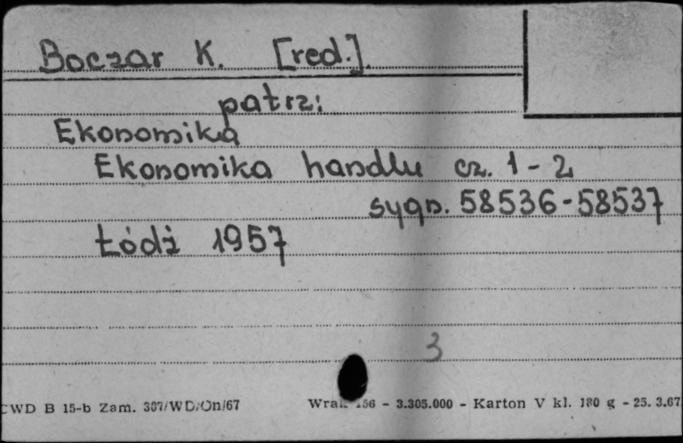 Boczar K. [red.].
patrz:
Ekonomika
Ekonomika handlu cz. 1-2
sygn. 58536-58537
Łódź 1957
3
CWD B 15-b Zam. 307/WD/On/67 - 3.305.000 - Karton V kl. 180 g - 25. 3.67